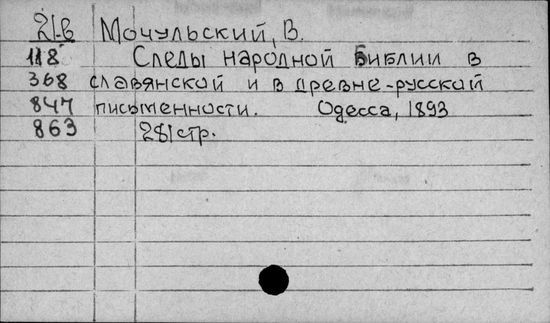 21-в Мочульский, В.
118 Следы народной Библии в
368 славянской и в древне-русской
847 письменности. Одесса, 1893
863 281 стр.